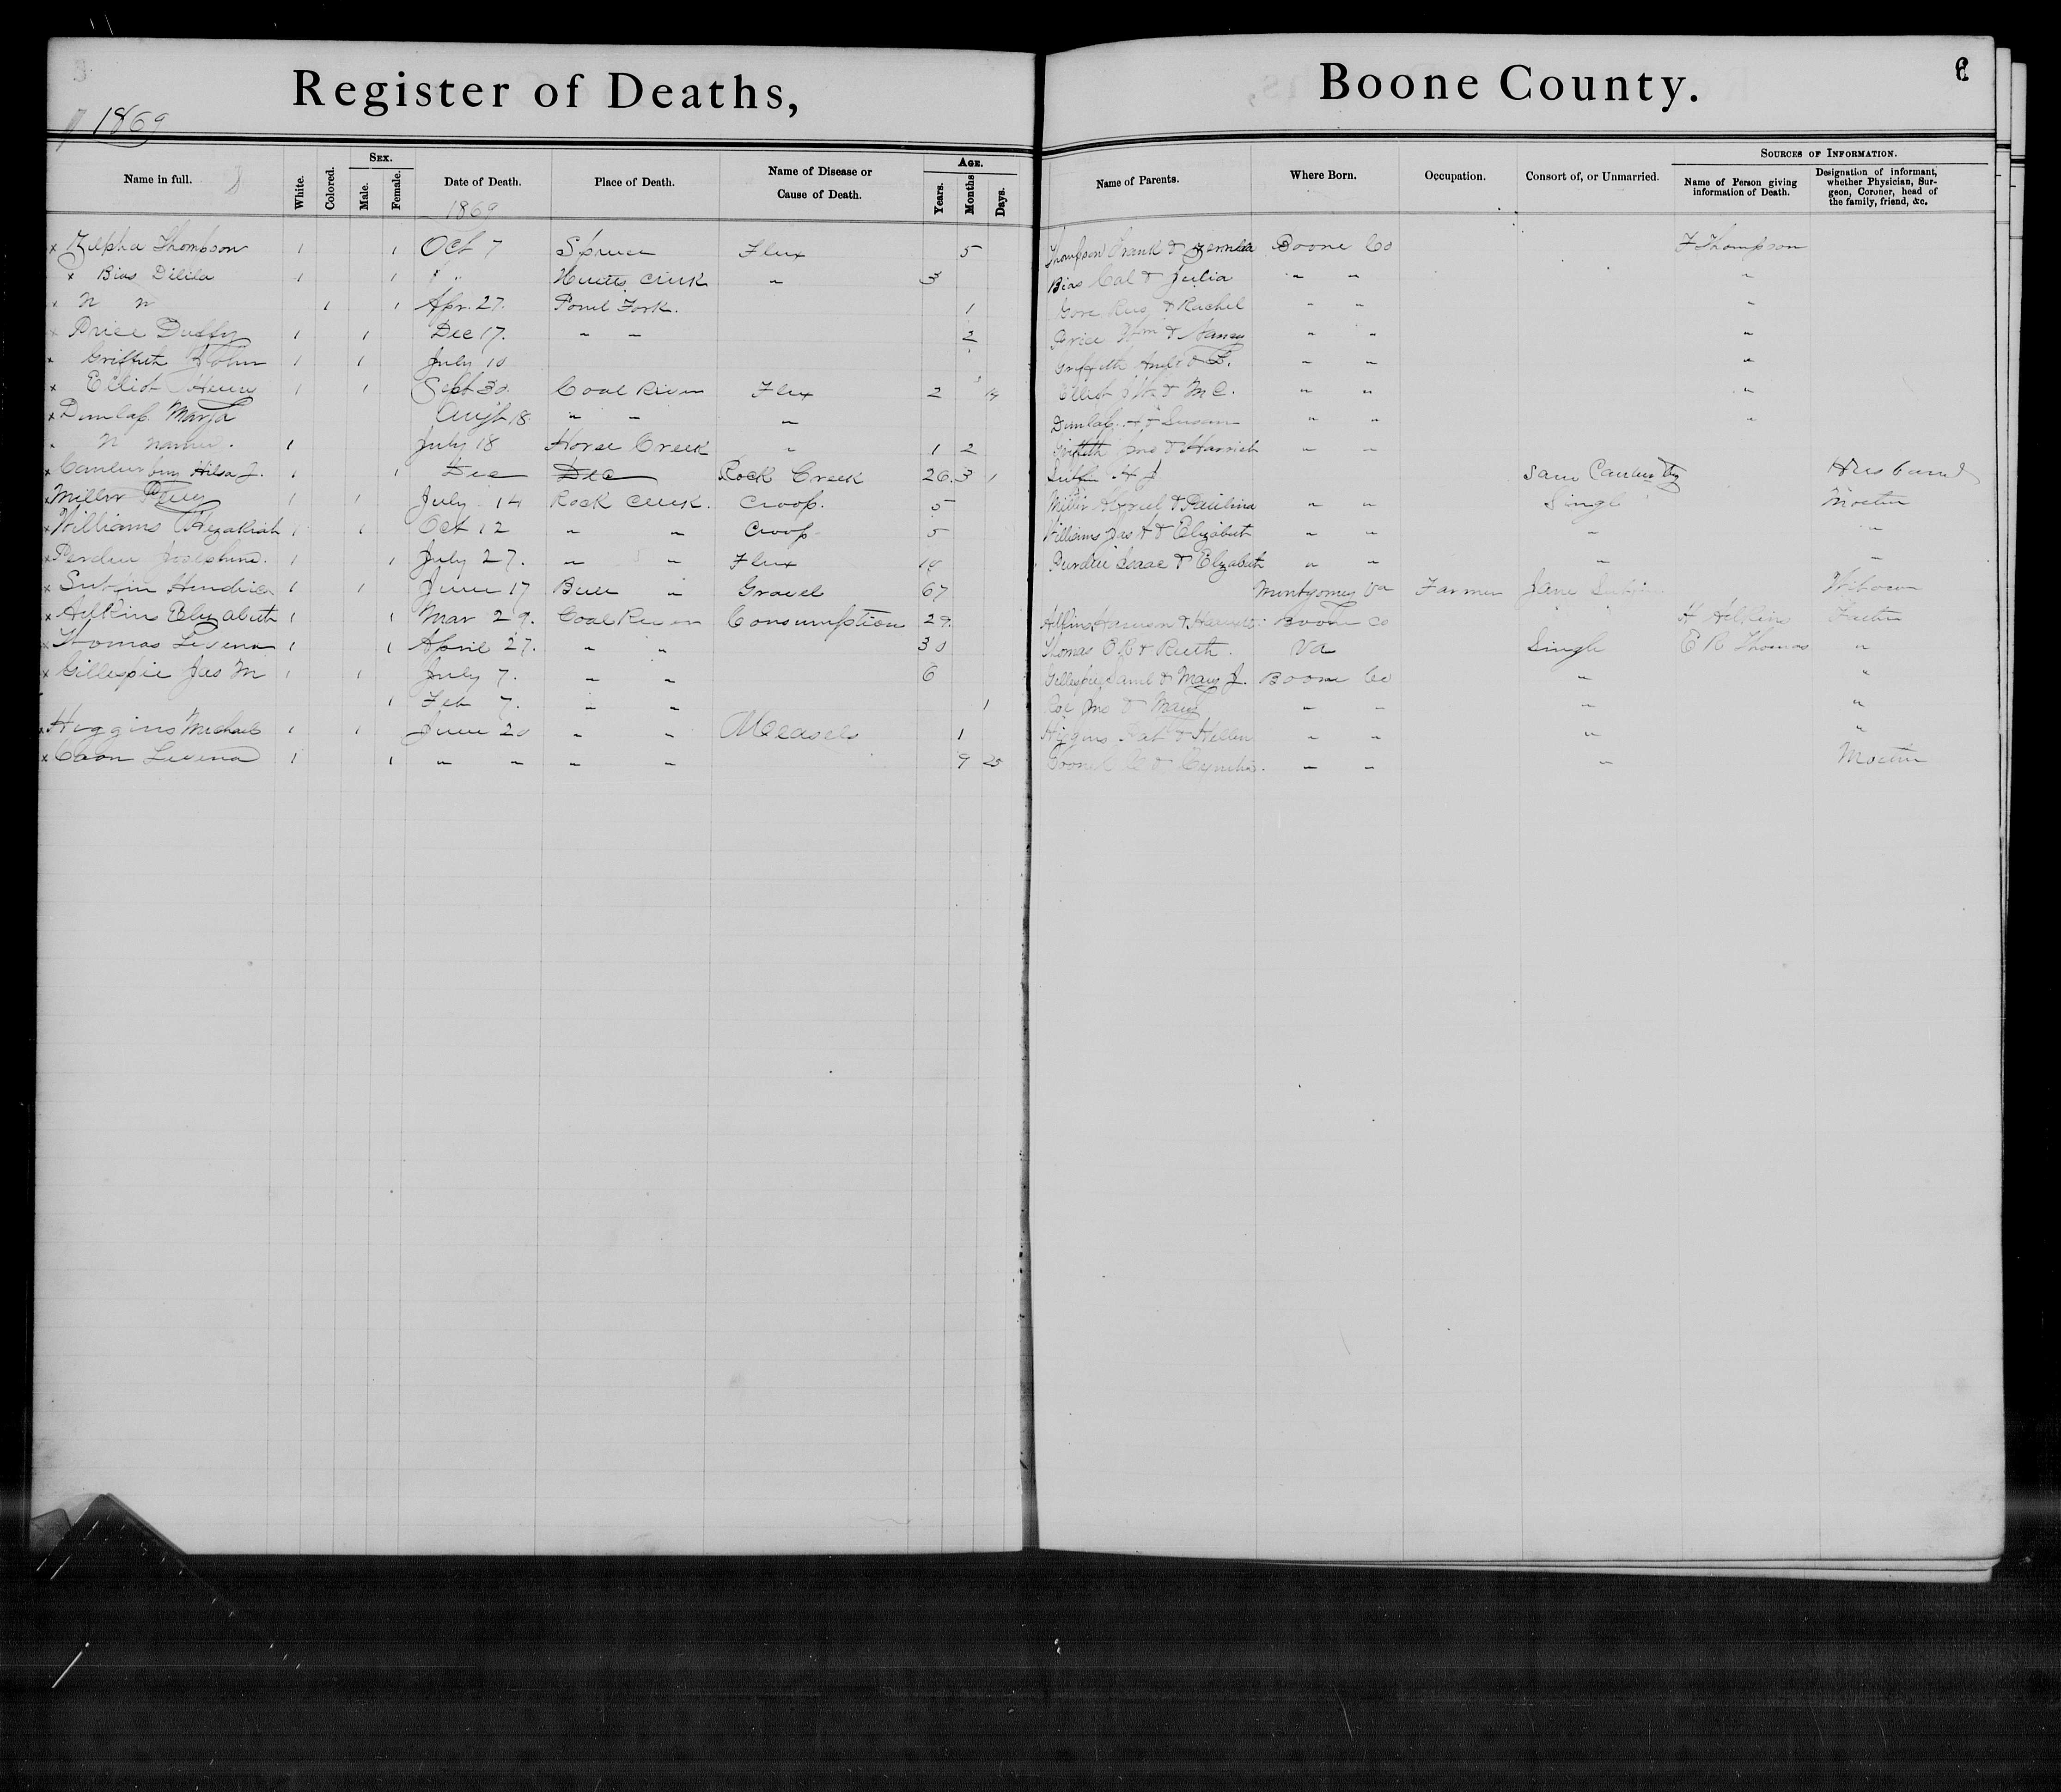 Register of Deaths, Boone County.
1869
Name in full. White. Colored. Sex. Male. Female. Date of Death. Place of Death. Name of Disease or Cause of Death. Age. Years. Months Days. Name of Parents. Where Born. Occupation. Consort of, or Unmarried. Sources of Information. Name of Person giving information of Death. Designation of informant, whether Physician, Surgeon, Coroner, head of the family, friend, &c.
1869
x Zilpha Thompson 1 1 Oct 7 Spruce Flux 5 Thompson Frank & Boone Co F Thompson
x Bias Dilila 1 1 " " Creek " 3 Bias Cal & Julia " " "
x N n 1 1 Apr. 27. Pond Fork. 1 Gore & Rachel " " "
x Price Duffy 1 1 Dec 17. " " 2 Price Wm & Nancy " " "
x Griffith John 1 1 July 10 Griffith & " " "
x Elliot Henry 1 1 Sept 30. Coal River Flux 2 14 Elliot & M C. " " "
x Dunlap. Augst 18 " " " Dunlap. & Susan " " "
N name. 1 July 18 Horse Creek " 1 2 Griffith Jno & " "
x J. 1 1 Dec Dec Rock Creek 26. 3 1 H J Sam Husband
x Miller 1 1 July 14 Rock Creek. Croop. 5 Miller & Paulina " " Single Mother
x Williams Hezakiah 1 1 Oct 12 " " Croop 5 Williams Jas & Elizabeth " " " "
x Perdue Josephine. 1 1 July 27. " " Flux Purdue Isaac & Elizabeth " " " "
x 1 1 June 17 Bull " Gravel 67 Montgomery Va Farmer Jane Widow
x Elizabeth 1 1 Mar 29. Coal River Consumption 29. Harrison & Boone Co H Father
x Thomas 1 1 April 27. " " 30 Thomas E R & Ruth. Va Single E R Thomas "
x Gillespie Jas M 1 1 July 7. " " 6 Gillespie & Mary J. Boone Co " "
1 Feb 7. " " 1 Jno & Mary " " " "
x Higgins Michael 1 1 June 20 " " Measels 1 Higgins & Hellen " " " "
x 1 1 " " " " 9 25 & " " " Mother